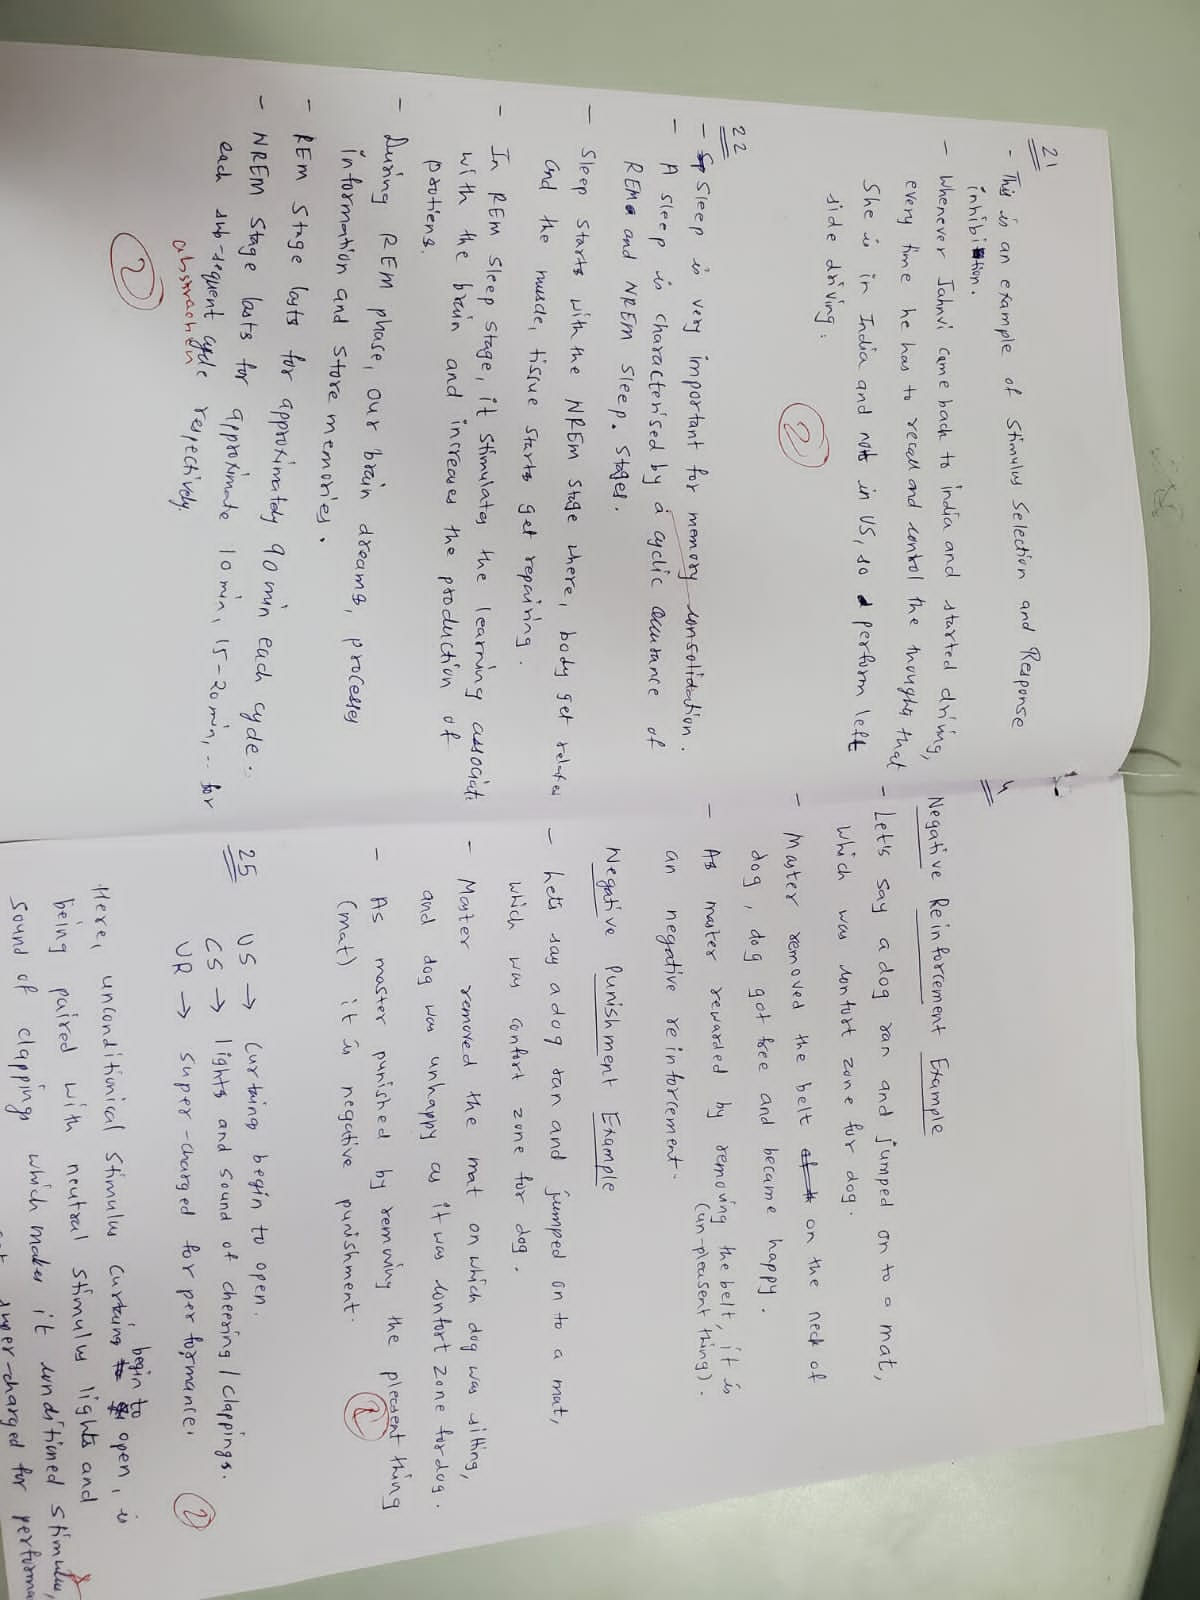 21
- This is an example of Stimulus Selection and Response
inhibition.
- Whenever Jahnvi came back to india and started driving,
every time he has to recall and control the thoughts that
She is in India and not in US, so perform left
side driving.
2
22
- Sleep is very important for memory consolidation.
- A sleep is characterised by a cyclic occurance of
REM and NREM sleep. Stages.
- Sleep starts with the NREM stage where, body get relaxes
and the muscle, tissue starts get repairing.
- In REM sleep stage, it stimulates the learning associate
with the brain and increases the production of
protiens.
- During REM phase, our brain dreams, processes
information and store memories.
- REM Stage lasts for approximately 90 min each cycle.
- NREM Stage lasts for approximate 10 min, 15-20 min, .. for
each sub-sequent cycle respectively.
abstraction
2
4
Negative Reinforcement Example
- Let's say a dog ran and jumped on to a mat,
which was confort zone for dog.
- Master removed the belt on the neck of
dog, dog got free and became happy.
- As master rewarded by removing the belt, it is
(un-plesent thing).
an negative reinforcement.
Negative Punishment Example
- Lets say a dog ran and jumped on to a mat,
which was confort zone for dog.
- Master removed the mat on which dog was sitting,
and dog was unhappy as it was confort zone for dog.
- As master punished by removing the plesent thing
(mat) it is negative punishment.
2
25
US → Curtains begin to open.
CS → lights and sound of cheering / clappings.
UR → super-charged for performance.
2
Here, unconditionical stimulus curtains begin to open, is
being paired with neutral stimulus lights and
sound of clappings which makes it conditioned stimulus,
super-charged for performa